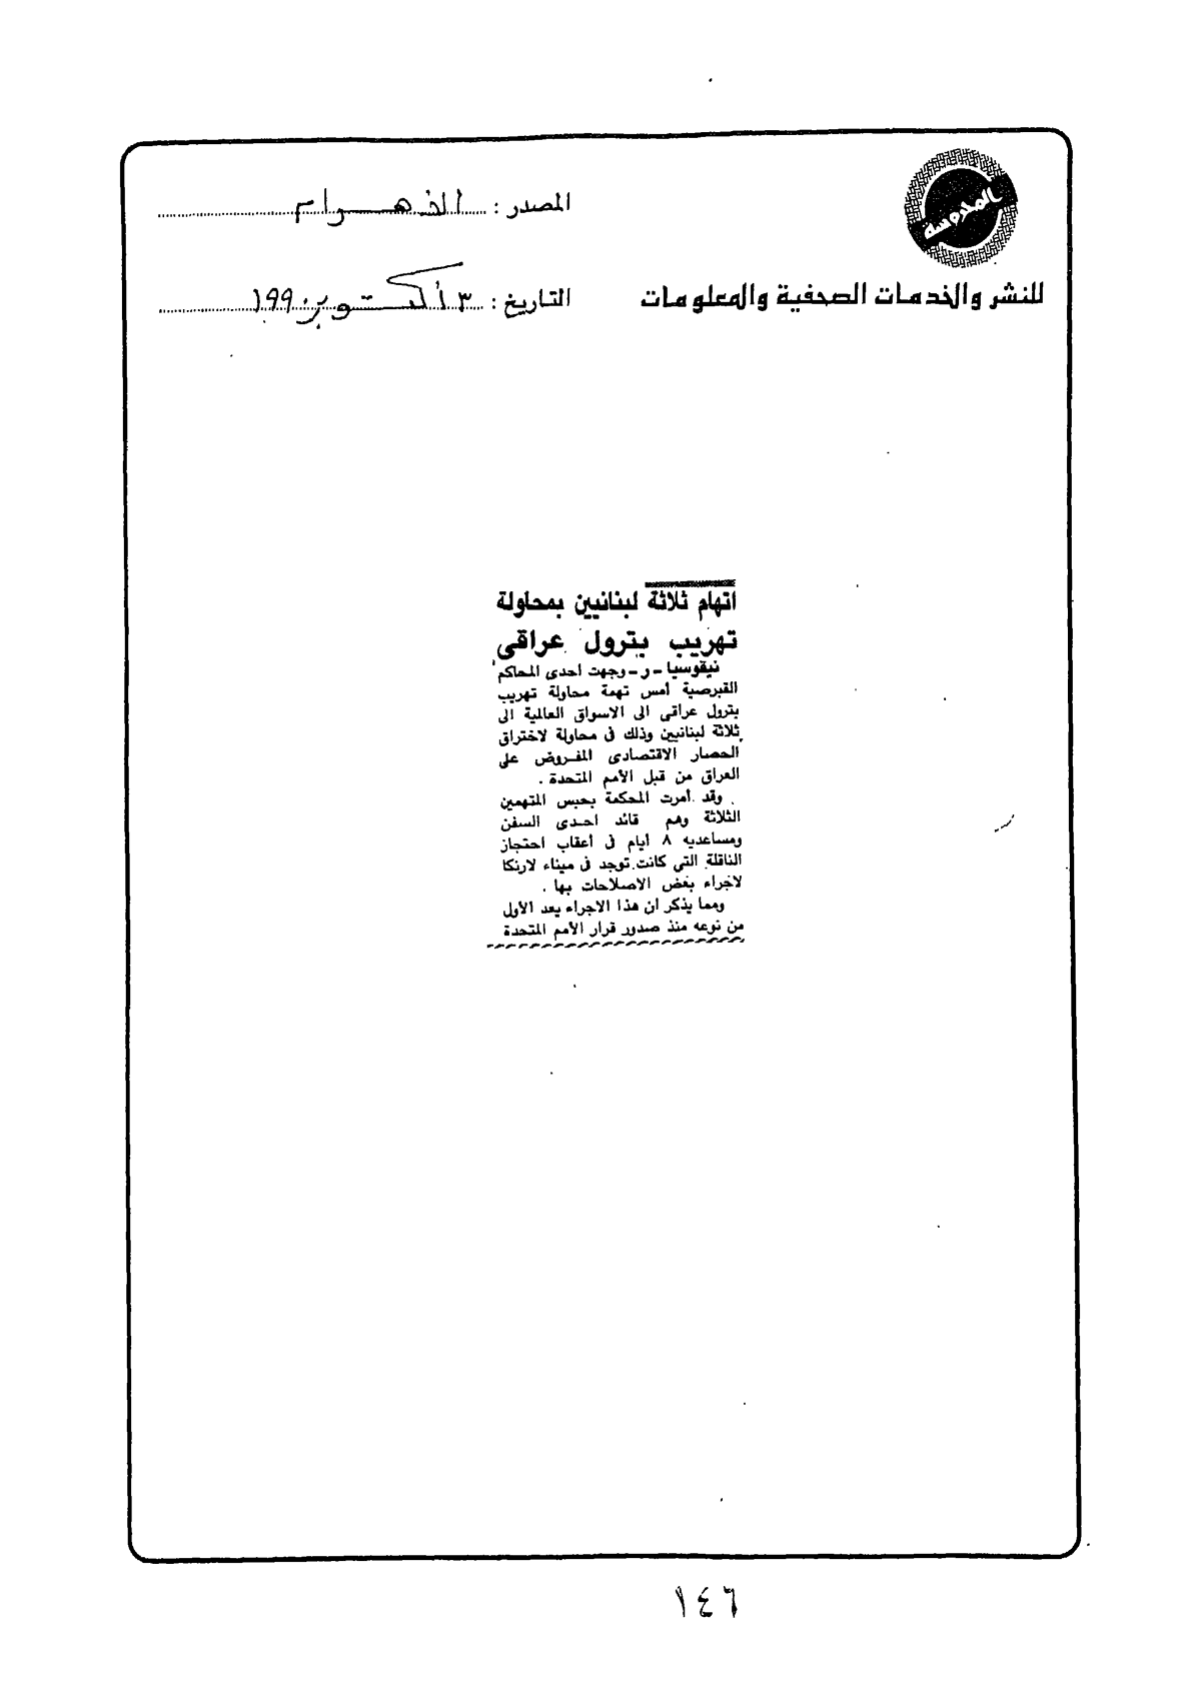 المحروسة
للنشر والخدمات الصحفية والمعلومات
المصدر : الأهرام
التاريخ : ٣ أكتوبر ١٩٩٠
اتهام ثلاثة لبنانيين بمحاولة
تهريب بترول عراقى
نيقوسيا - ر - وجهت أحدى المحاكم
القبرصية أمس تهمة محاولة تهريب
بترول عراقى الى الاسواق العالمية الى
ثلاثة لبنانيين وذلك فى محاولة لاختراق
الحصار الاقتصادى المفروض على
العراق من قبل الأمم المتحدة .
وقد أمرت المحكمة بحبس المتهمين
الثلاثة وهم قائد احدى السفن
ومساعديه ٨ أيام فى أعقاب احتجاز
الناقلة التي كانت توجد فى ميناء لارنكا
لاجراء بعض الاصلاحات بها .
ومما يذكر ان هذا الاجراء يعد الأول
من نوعه منذ صدور قرار الأمم المتحدة
١٤٦